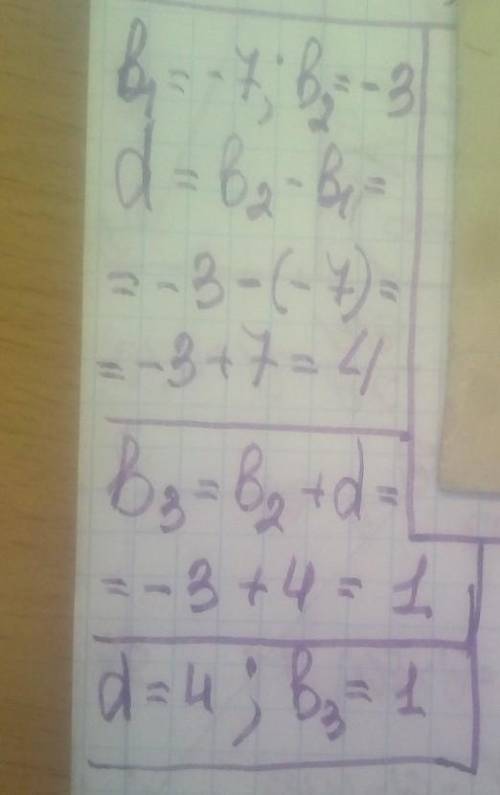 b₁ = -7; b₂ = -3
d = b₂ - b₁ =
= -3 - (-7) =
= -3 + 7 = 4
b₃ = b₂ + d =
= -3 + 4 = 1
d = 4; b₃ = 1